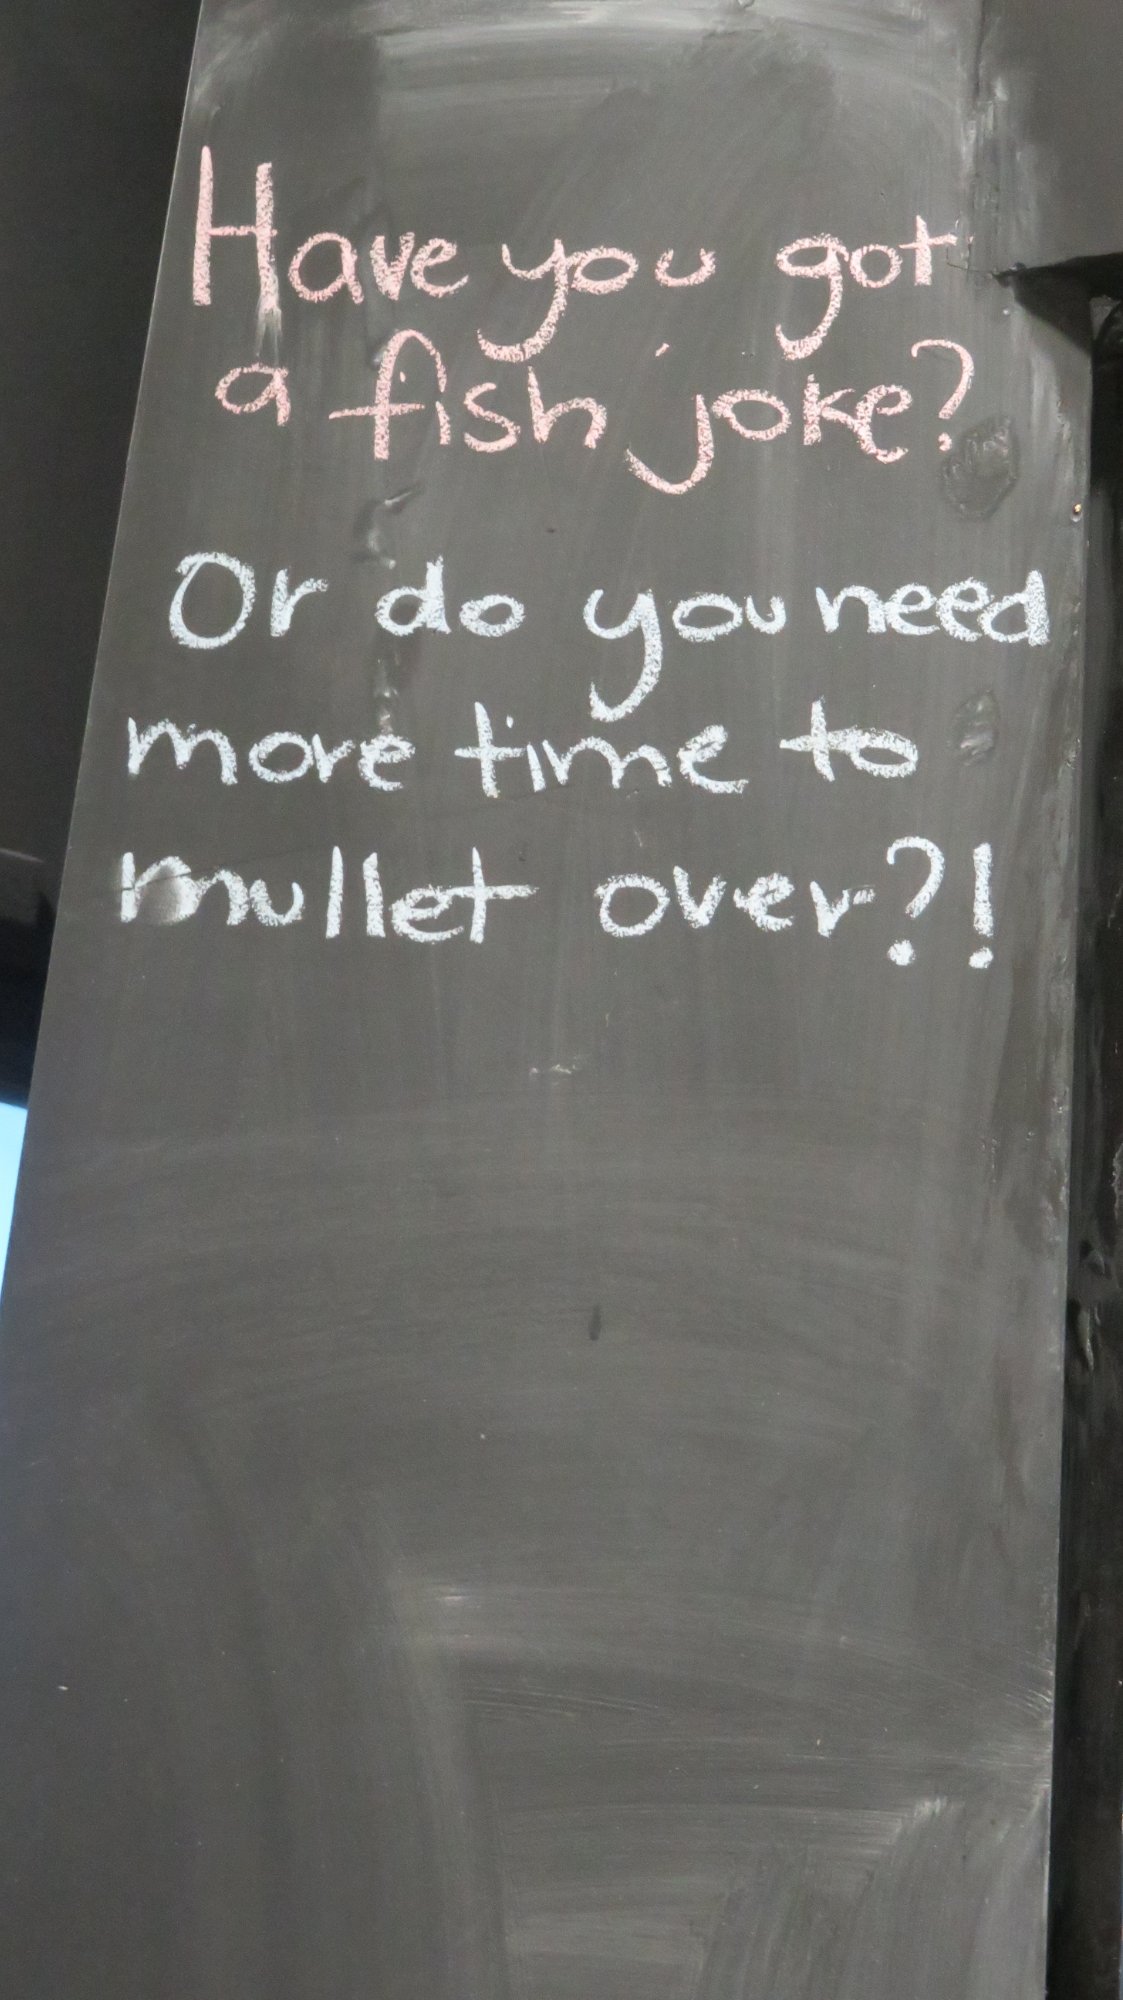 Have you got
a fish joke?
Or do you need
more time to
mullet over?!